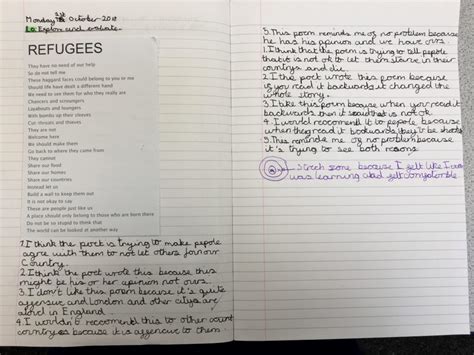 Monday October 2018
L.O Explore and evaluate
REFUGEES
They have no need of our help
So do not tell me
These haggard faces could belong to you or me
Should life have dealt a different hand
We need to see them for who they really are
Chancers and scroungers
Layabouts and loungers
With bombs up their sleeves
Cut-throats and thieves
They are not
Welcome here
We should make them
Go back to where they came from
They cannot
Share our food
Share our homes
Share our countries
Instead let us
Build a wall to keep them out
It is not okay to say
These are people just like us
A place should only belong to those who are born there
Do not be so stupid to think that
The world can be looked at another way
1.I think the poet is trying to make pepole
agree with them to not let others for our
Country.
2.I think the poet wrote this because this
might be his or her opinon not ours.
3.I don't like this poem because it's quite
affensive and London and other citys are
in England
4.I wouldn't reccomend this to other count
countrys because it is affencive to them.
5.This poem reminds me of no problem because
he has his opinion and we have ours.
1.I think that the poem is trying to tell pepole
that it is not ok to let them starve in their
countrys and die.
2.I the poet wrote this poem because
if you read it backwards it changed the
whole story.
3.I like this poem because when you read it
backwards then it that is not ok
4.I would reccomend it to pepole because
when they read it backwards they'll be shocked
5.This reminds me of no problem because
it's trying to see both reasons.
Strech zone because I felt like I
was learning and felt comfortable